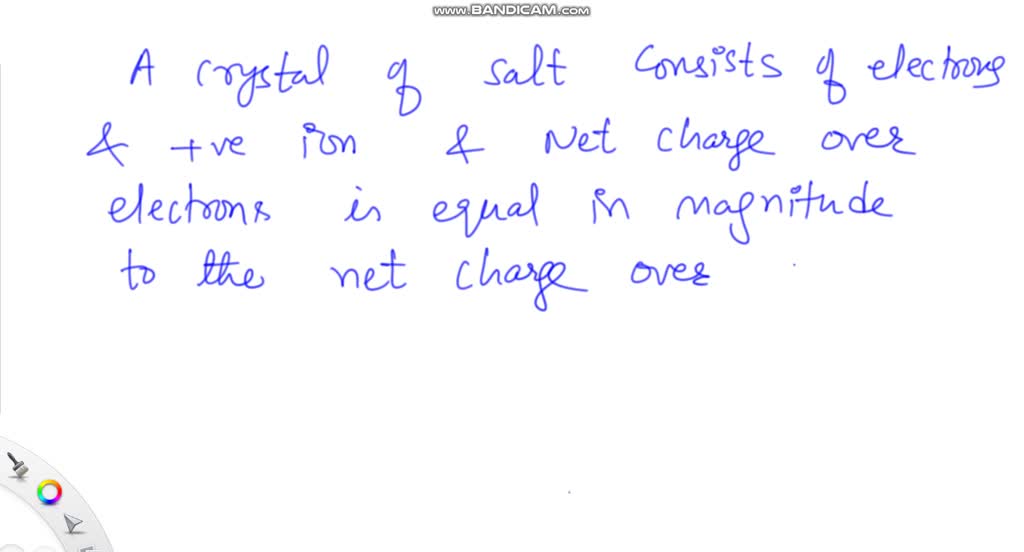 www.BANDICAM.com
A crystal of salt consists of electrons
& +ve ion & Net charge over
electrons is equal in magnitude
to the net charge over